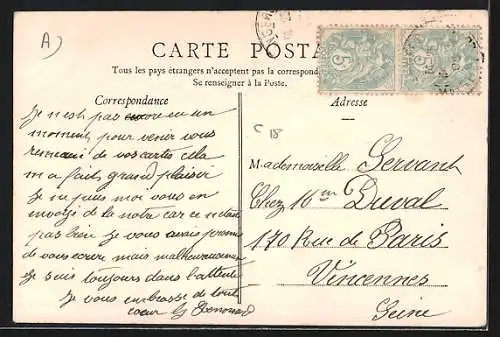 A)
CARTE POSTA
Tous les pays étrangers n'acceptent pas la correspond
Se renseigner à la Poste.
Correspondance
Adresse
5
5
C 18
Je n'est pas encore eu un
moment pour venir vous
remerci de vos cartes cela
m a fait grand plaisir
Je ne puis moi vous en
de la notre car ce n etait
pas bien Je vous avais promis
de vous ecrire mais malheureusemen
Je suis toujours dans l'attente
Je vous embrasse de tout
coeur
Mademoiselle Servant
Chez Mme Duval
170 Rue de Paris
Vincennes
Seine